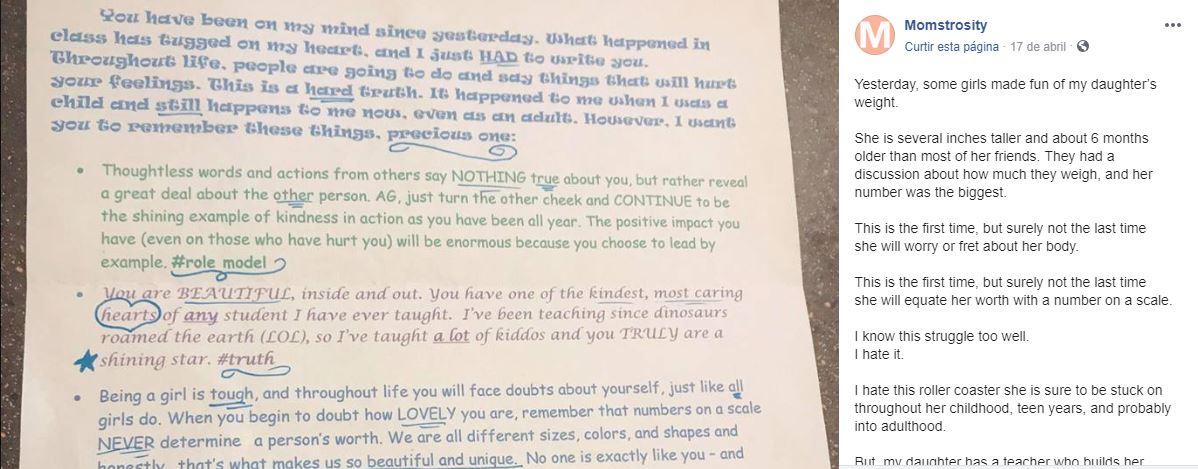 You have been on my mind since yesterday. What happened in
class has tugged on my heart, and I just HAD to write you.
Throughout life, people are going to do and say things that will hurt
your feelings. This is a hard truth. It happened to me when I was a
child and still happens to me now, even as an adult. However, I want
you to remember these things, precious one:
• Thoughtless words and actions from others say NOTHING true about you, but rather reveal
a great deal about the other person. AG, just turn the other cheek and CONTINUE to be
the shining example of kindness in action as you have been all year. The positive impact you
have (even on those who have hurt you) will be enormous because you choose to lead by
example. #role model
• You are BEAUTIFUL, inside and out. You have one of the kindest, most caring
hearts of any student I have ever taught. I've been teaching since dinosaurs
roamed the earth (LOL), so I've taught a lot of kiddos and you TRULY are a
shining star. #truth
• Being a girl is tough, and throughout life you will face doubts about yourself, just like all
girls do. When you begin to doubt how LOVELY you are, remember that numbers on a scale
NEVER determine a person's worth. We are all different sizes, colors, and shapes and
honestly, that's what makes us so beautiful and unique. No one is exactly like you - and
M
Momstrosity
Curtir esta página · 17 de abril ·
Yesterday, some girls made fun of my daughter's
weight.
She is several inches taller and about 6 months
older than most of her friends. They had a
discussion about how much they weigh, and her
number was the biggest.
This is the first time, but surely not the last time
she will worry or fret about her body.
This is the first time, but surely not the last time
she will equate her worth with a number on a scale.
I know this struggle too well.
I hate it.
I hate this roller coaster she is sure to be stuck on
throughout her childhood, teen years, and probably
into adulthood.
But, my daughter has a teacher who builds her